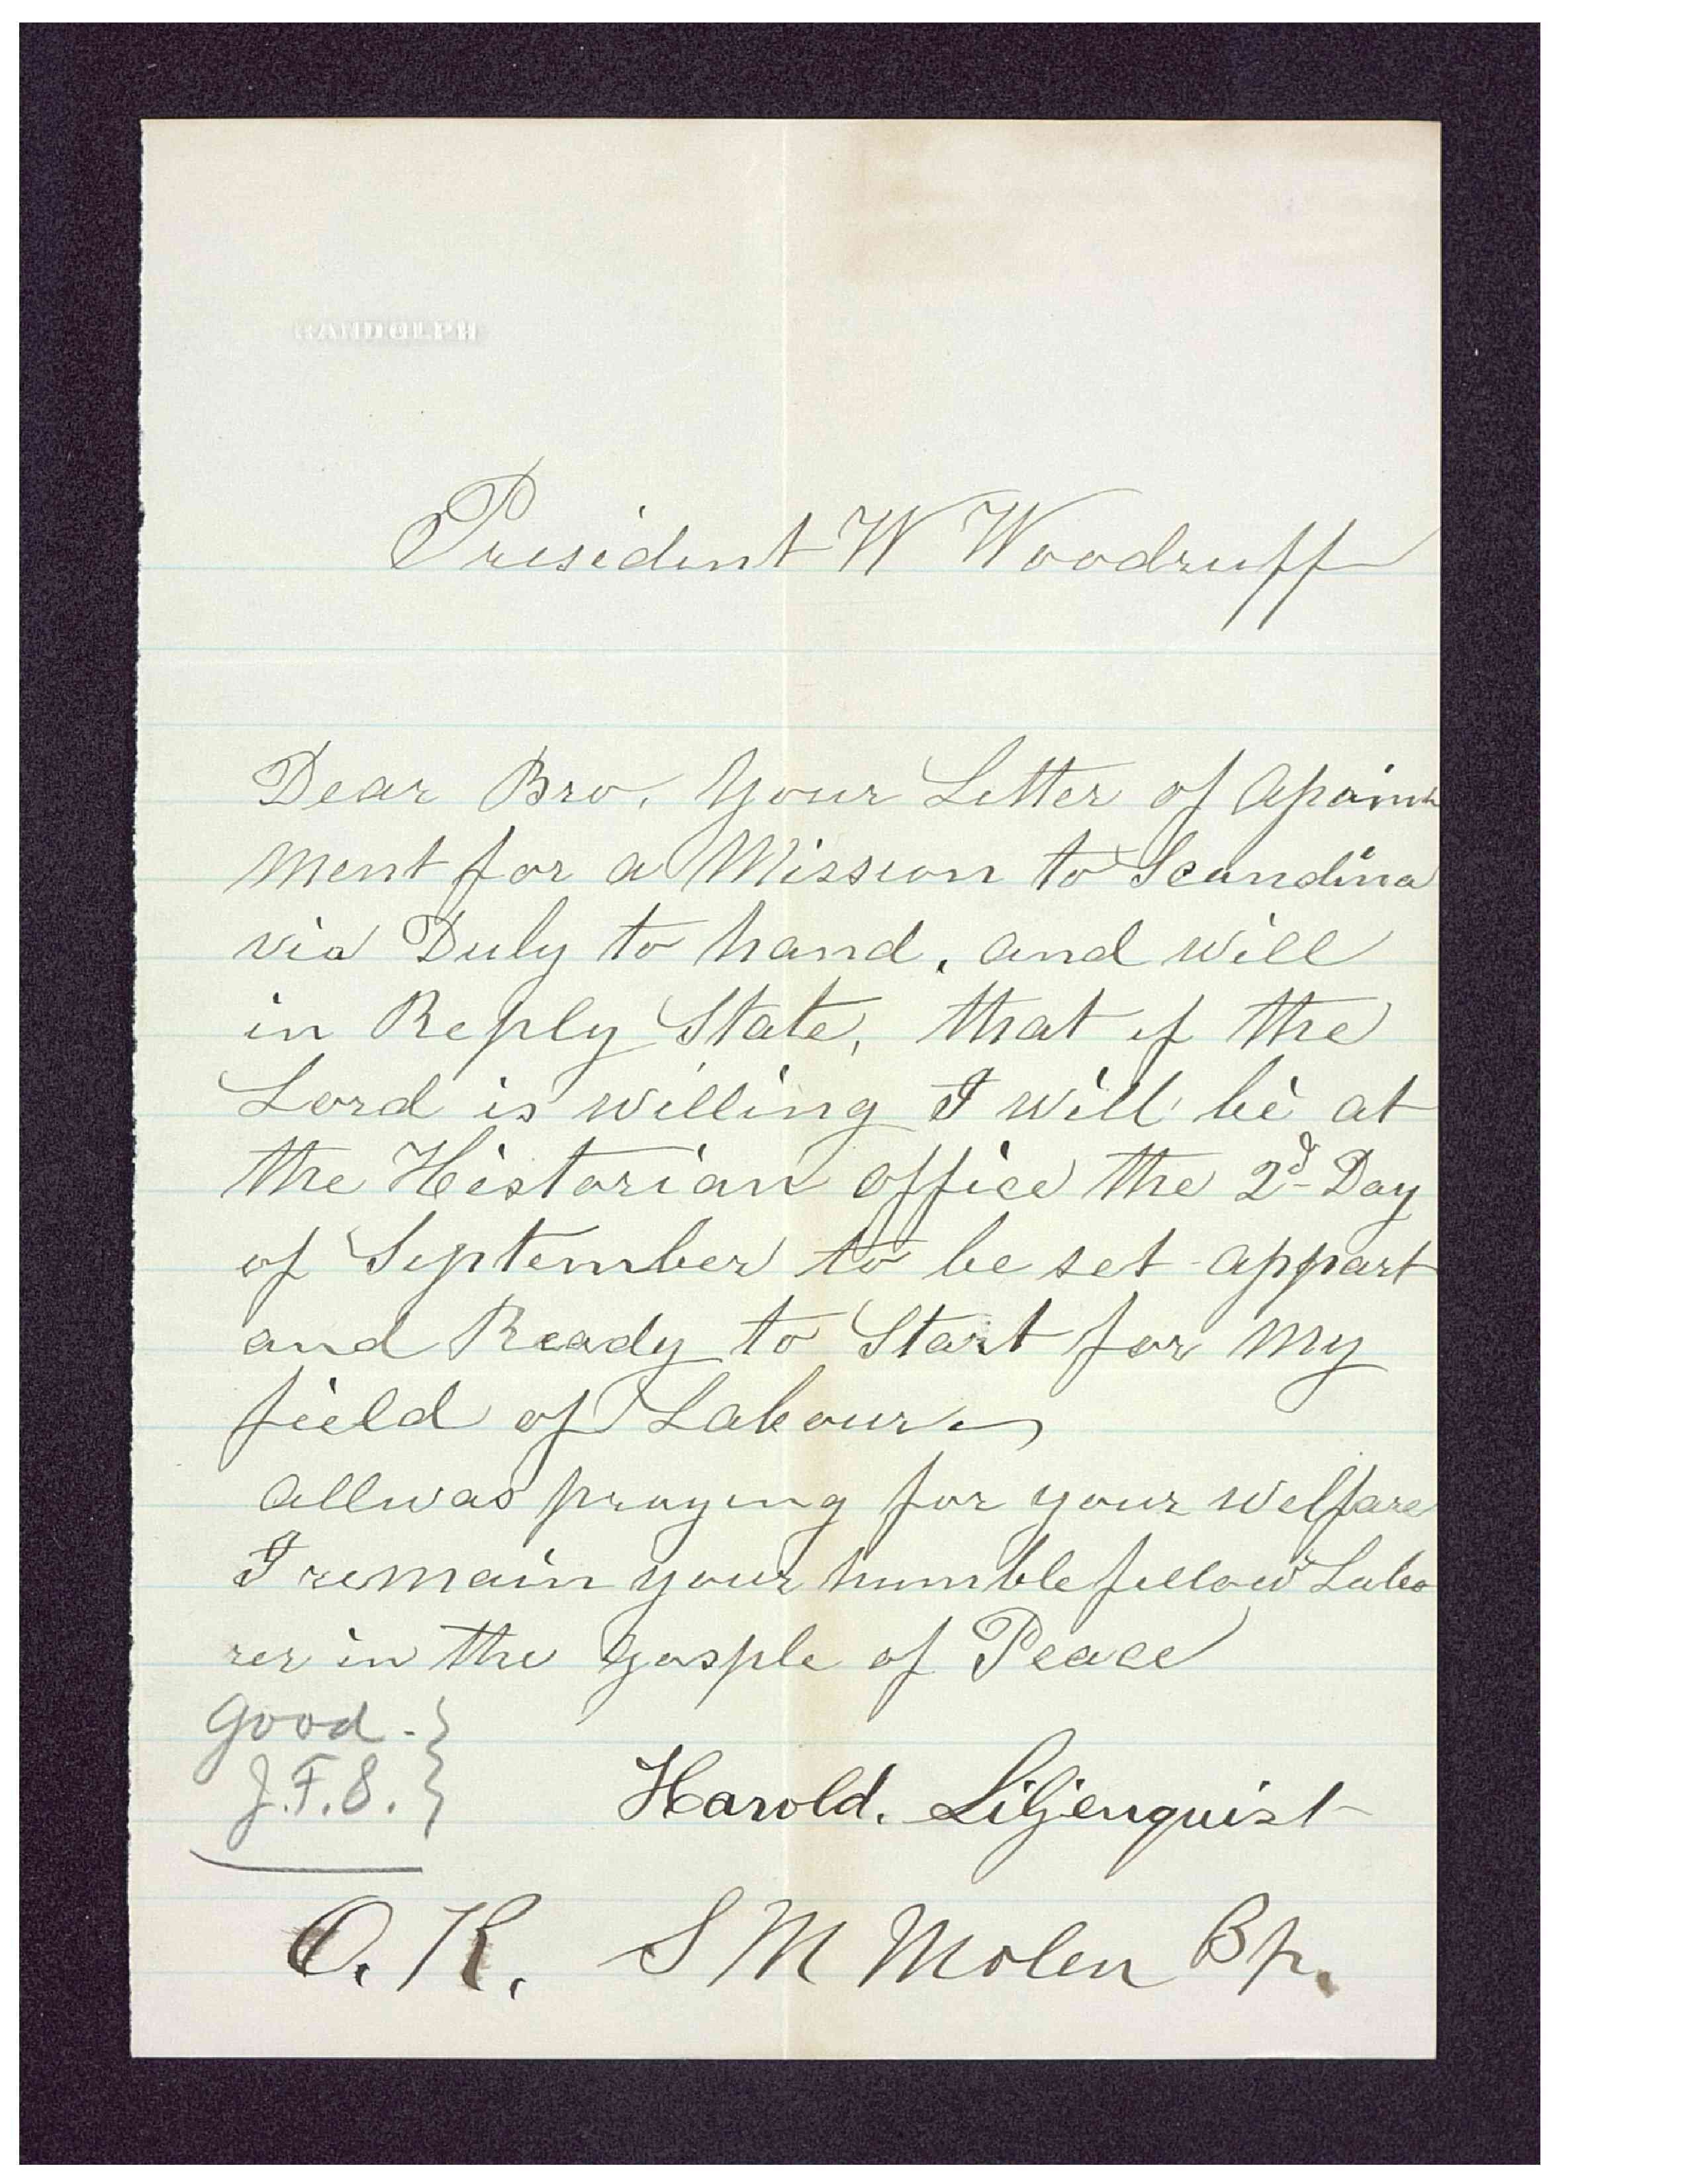 RANDOLPH
President W Woodruff
Dear Bro. Your Letter of Apoint
ment for a Mission to Scandina
via Duly to hand, and will
in Reply State, that if the
Lord is willing I will be at
the Historian office the 2d Day
of September to be set appart
and Ready to Start for my
field of Labour
allwas praying for your welfare
I remain your humble fellow Labo
rer in the gosple of Peace
Good - }
J.F.S. }
Harold. Liljenquist
O.K. S M Molen Bp.